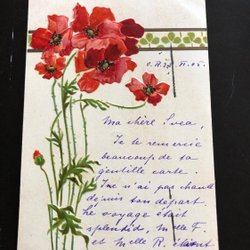 Ma chère
Je te remercie
beaucoup de ta
gentille carte.
n'ai pas chanté
depuis ton départ.
Le voyage était
splendide, Melle F.
et Melle R.